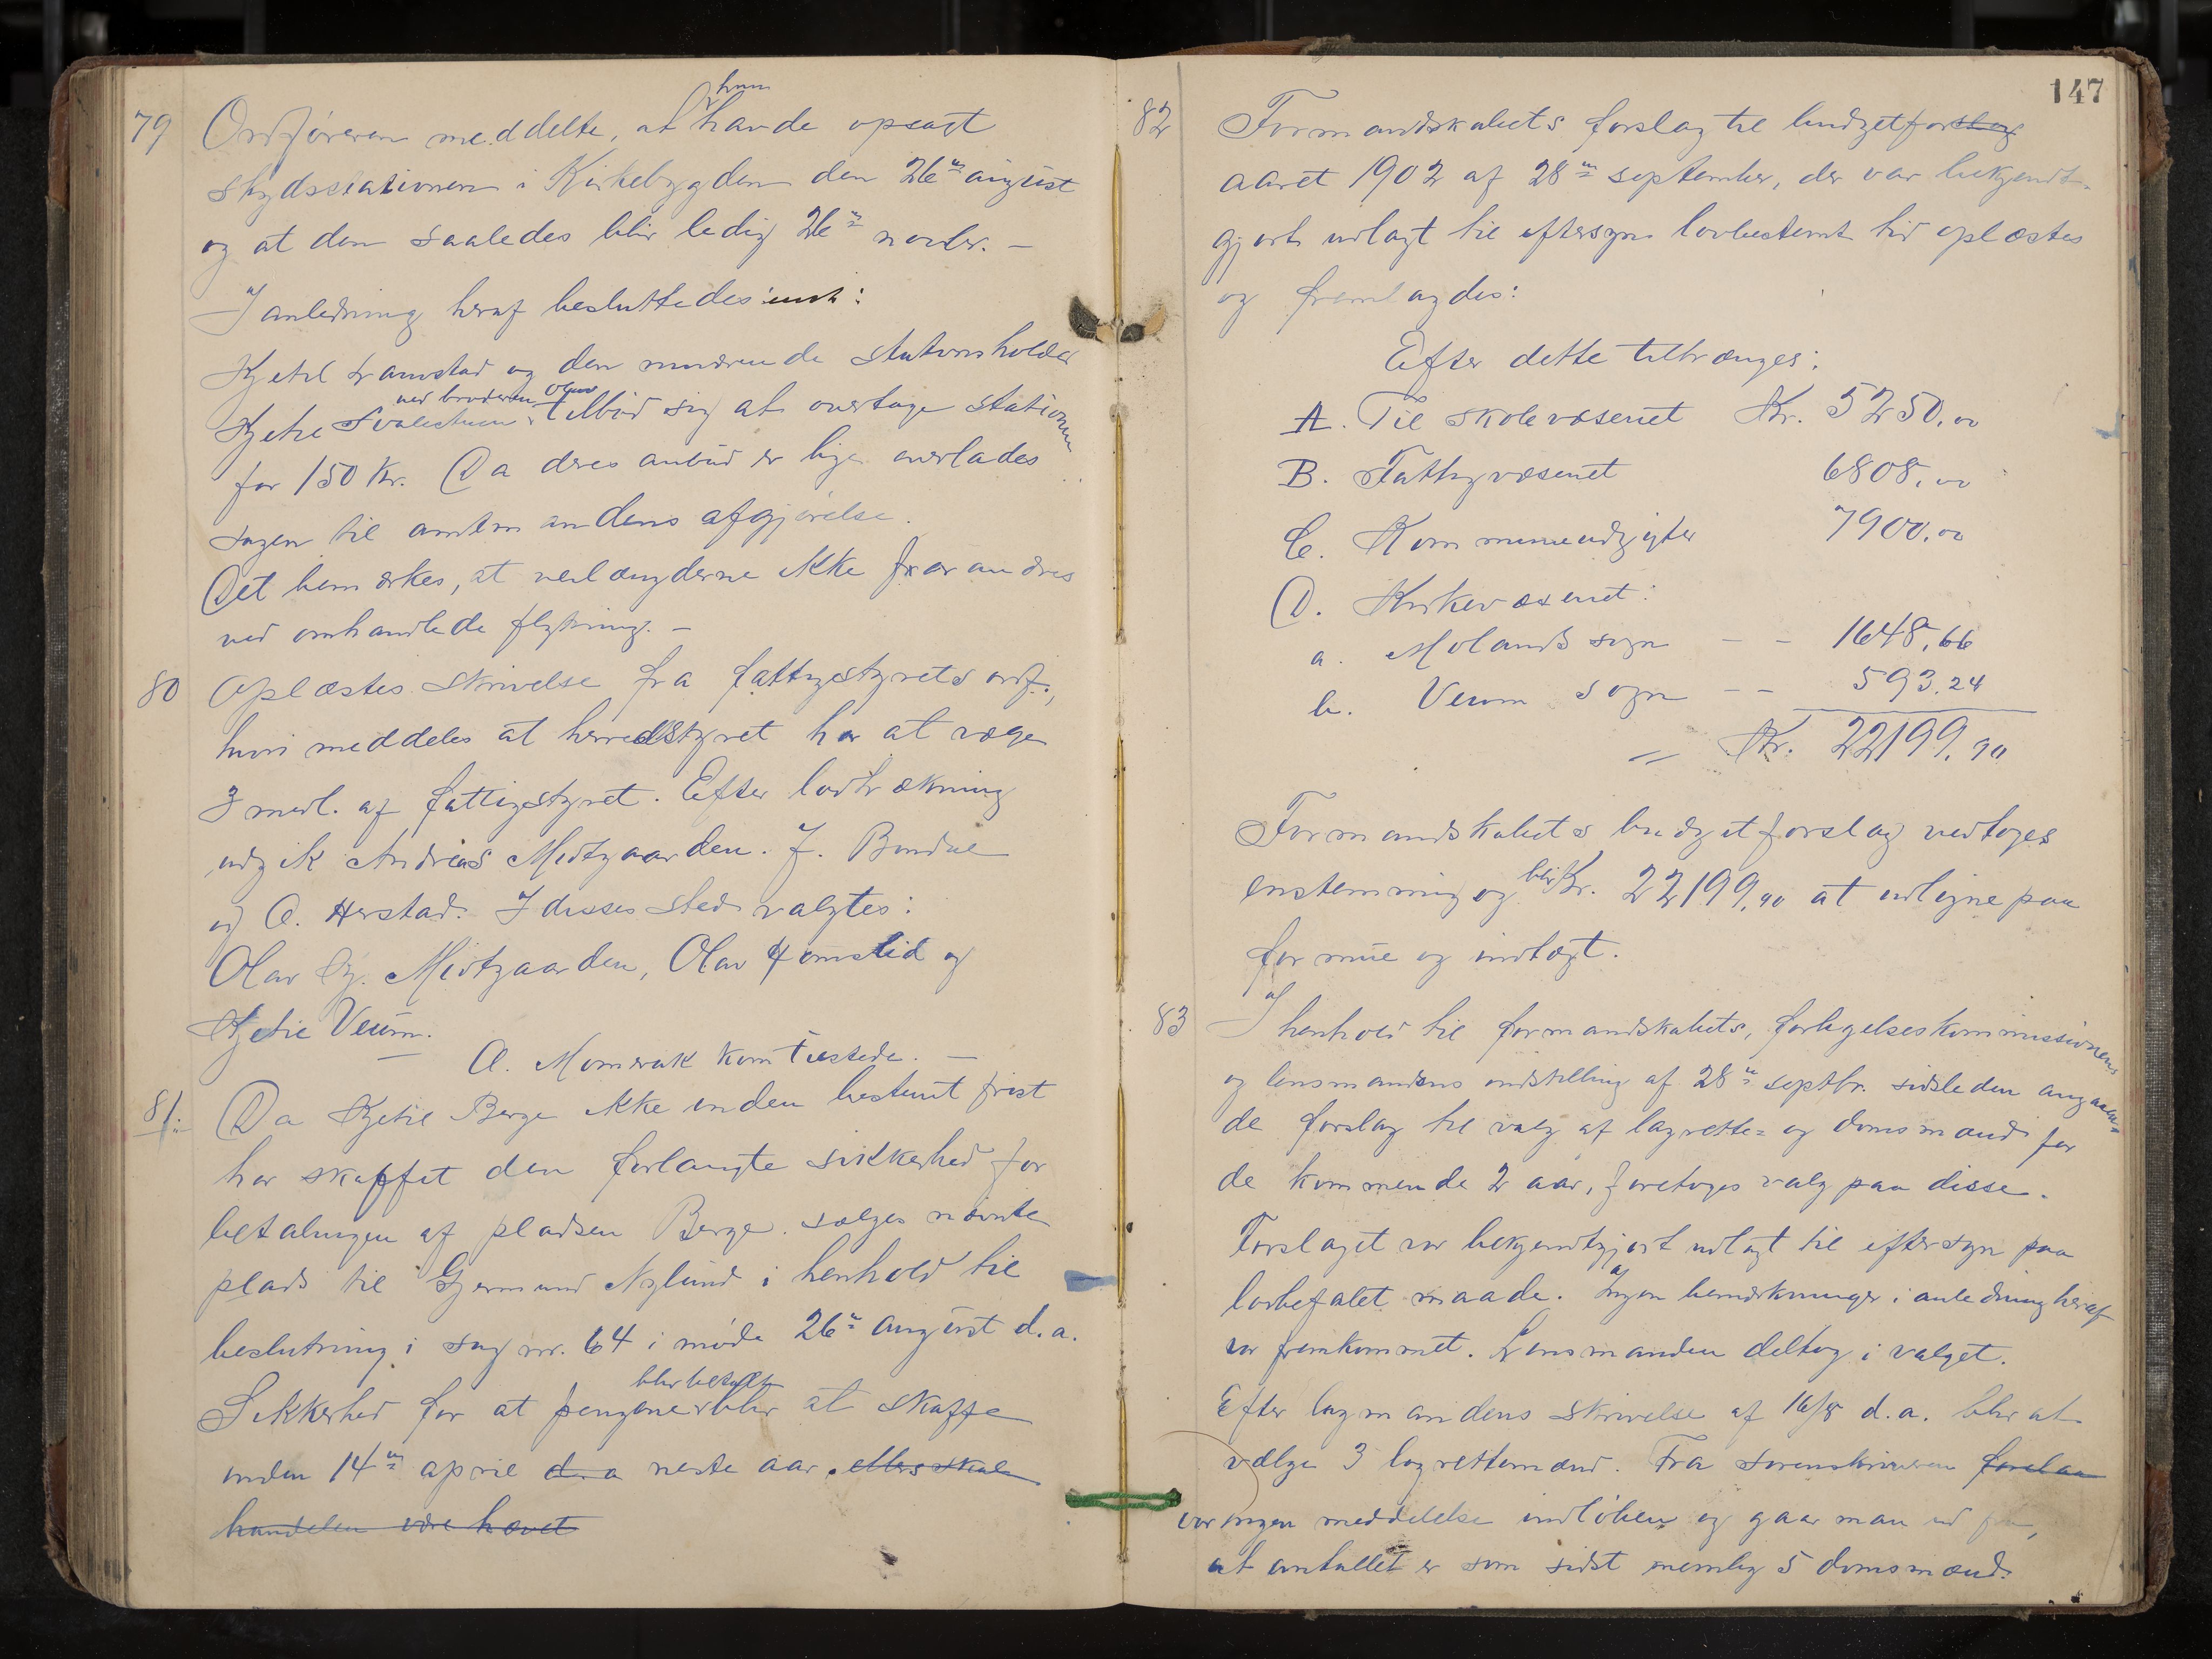 79 Ordføreren meddelte, at han havde opsagt
skydsstationen i Kirkebygden den 26de august
og at den saaledes blir ledig 26de novbr. –
I anledning heraf besluttedes enst:
Kjetil Ramstad og den nuværende stationsholder
Kjetil ved broderen Olav tilbød sig at overtage stationen
for 150 Kr. Da deres anbud er lige overlades
sagen til amtmandens afgjørelse.
Det bemærkes, at veilængderne ikke forandres
ved omhandlede flytning. –
80 Oplæstes skrivelse fra fattigstyrets ordf.,
hvori meddeles at herredsstyret har at vælge
3 medl. af fattigstyret. Efter lodtrækning
udgik Andreas Midtgaarden. J. Bondal
og O. Herstad. I disses sted valgtes:
Olav G. Midtgaarden, Olav Homslid og
Kjetil Veum.
– A. Momrak kom tilstede. –
81: Da Kjetil Berge ikke inden bestemt frist
har skaffet den forlangte sikkerhed for
betalingen af pladsen Berge sælges nævnte
plads til Gjermund Nylund i henhold til
beslutning i sag nr. 64 i møde 26de august d.a.
Sikkerhed for at pengene blir betalt blir at skaffe
inden 14de april d.a neste aar. ellers skal
handelen være hævet
147
82 Formandskabets forslag til budget for forslag
aaret 1902 af 28de september, der var bekjendt-
gjort udlagt til eftersyn lovbestemt tid oplæstes
og fremlagdes:
Efter dette tiltrænges:
A. Til skolevæsenet Kr. 5250.00
B. Fattigvæsenet 6808.00
C. Kommuneudgifter 7900.00
D. Kirkevæsenet:
a. Molands sogn – – 1648,66
b. Veum sogn – – 593.24
= Kr. 22199.90
Formandskabets budgetforslag vedtoges
enstemmig og blir Kr. 22199,90 at udligne paa
formue og indtægt.
83 I henhold til formandskabets, forligelseskommissionens
og lensmandens indstilling af 28de septbr. sidsleden angaaen-
de forslag til valg af lagrette- og domsmænd for
de kommende 2 aar, foretoges valg paa disse.
Forslaget var bekjendtgjort udlagt til eftersyn paa
lovbefalet maade. Ingen bemærkninger i anledning heraf
var fremkommet. Lensmanden deltog i valget.
Efter lagmandens skrivelse af 16/8 d.a. blir at
vælge 3 lagrettemænd. Fra sorenskriveren
var ingen meddelelse indløben og gaar man ud fra,
at antallet er som sidst nemlig 5 domsmænd.